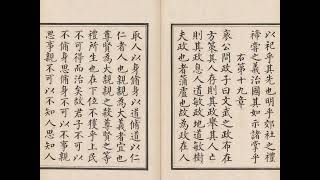 以祀乎其先也明乎郊社之禮
禘嘗之義治國其如示諸掌乎
右第十九章
哀公問政子曰文武之政布在
方策其人存則其政舉其人亡
則其政息人道敏政地道敏樹
夫政也者蒲盧也故為政在人
取人以身脩身以道脩道以仁
仁者人也親親為大義者宜也
尊賢為大親親之殺尊賢之等
禮所生也在下位不獲乎上民
不可得而治矣故君子不可以
不脩身思脩身不可以不事親
思事親不可以不知人思知人